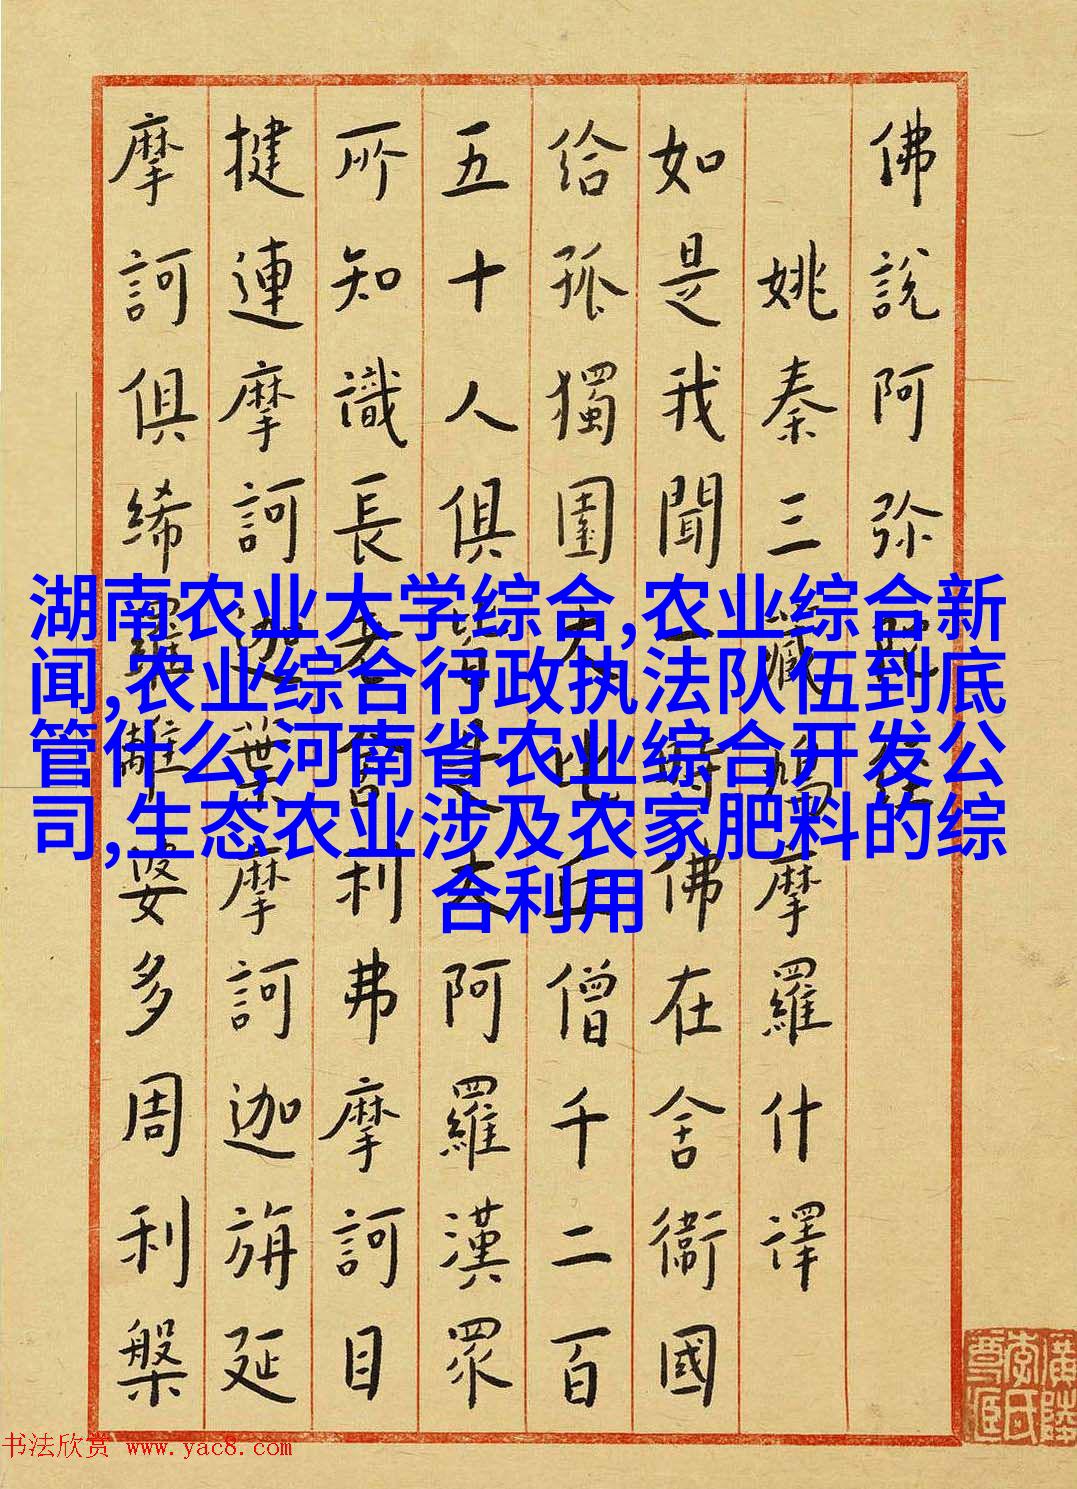 佛說阿弥陀經
姚秦三藏鳩摩羅什譯
如是我聞一時佛在舍衞國
給孤獨園大比丘僧千二百
五十人俱皆是大阿羅漢眾
所知識長老舍利弗摩訶目
揵連摩訶迦葉摩訶迦旃延
摩訶俱絺羅離婆多周利槃
湖南农业大学综合,农业综合新
闻,农业综合行政执法队伍到底
管什么,河南省农业综合开发公
司,生态农业涉及农家肥料的综
合利用
书法欣赏 www.yac8.com